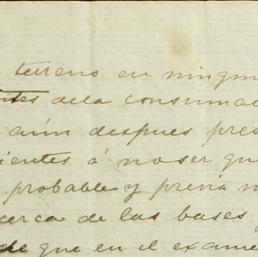 terreno en ningun
ntes dela consumac
aún despues pres
ientes á noser que
probable y previa
cerca de las bases
de que en el exame